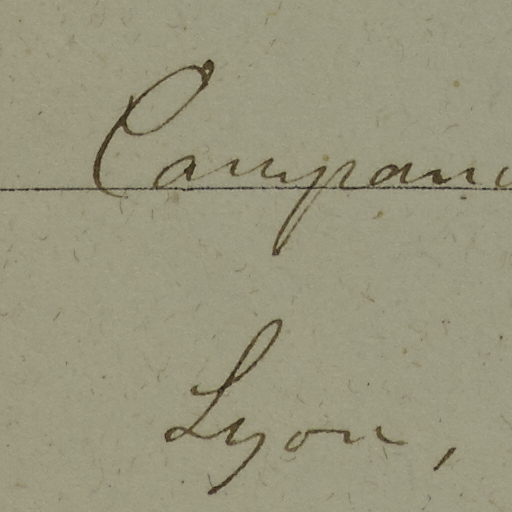 Campan
Lyon,